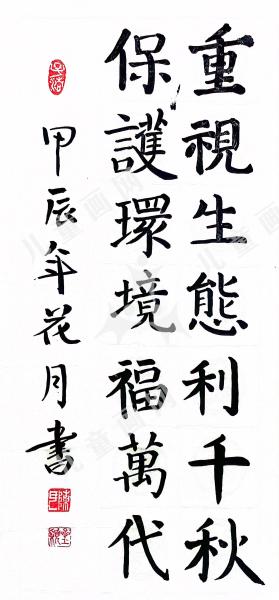 重視生態利千秋
保護環境福萬代
甲辰年花月書